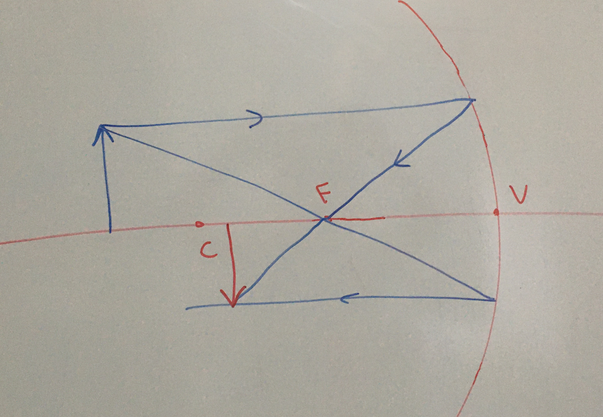 F
V
C